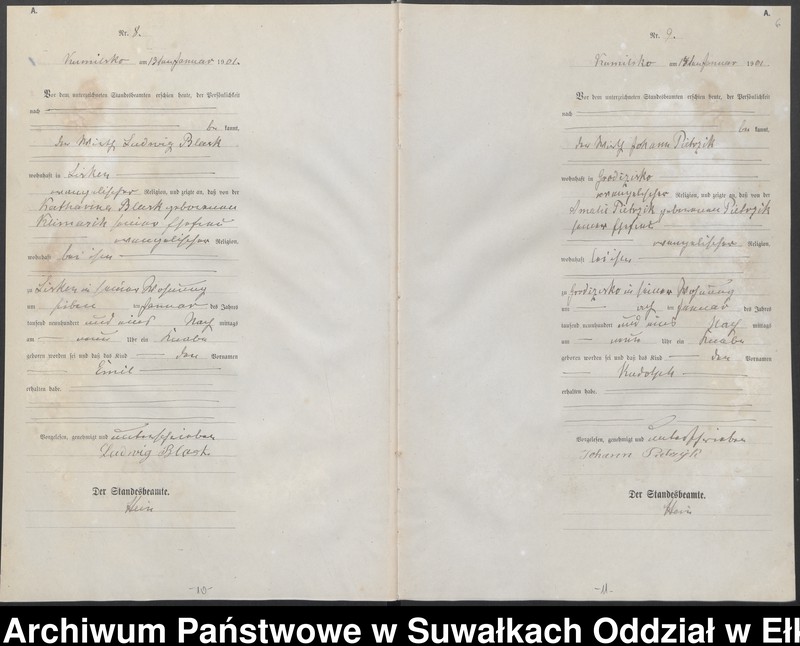 A.
Nr. 8.
Kumilsko am 13ten Januar 1901.
Vor dem unterzeichneten Standesbeamten erschien heute, der Persönlichkeit
nach
be kannt,
der Wirth Ludwig Blask
wohnhaft in Lisken
evangelischer Religion, und zeigte an, daß von der
Katharina Blask geborenen
Klimasch seiner Ehefrau
evangelischer Religion,
wohnhaft bei ihm
zu Lisken in seiner Wohnung
am sieben ten Januar des Jahres
tausend neunhundert und eins Nach mittags
um neun Uhr ein Knabe
geboren worden sei und daß das Kind den Vornamen
Emil
erhalten habe.
Vorgelesen, genehmigt und unterschrieben
Ludwig Blask
Der Standesbeamte.
Hein
-10-
A.
6
Nr. 9.
Kumilsko am 13ten Januar 1901
Vor dem unterzeichneten Standesbeamten erschien heute, der Persönlichkeit
nach
be kannt,
der Wirth Johann Pietrzik
wohnhaft in Grodzisko
evangelischer Religion, und zeigte an, daß von der
Amalie Pietrzik geborenen Pietrzik
seiner Ehefrau
evangelischer Religion,
wohnhaft bei ihm
zu Grodzisko in seiner Wohnung
am acht ten Januar des Jahres
tausend neunhundert und eins Nach mittags
um neun Uhr ein Knabe
geboren worden sei und daß das Kind den Vornamen
Rudolph
erhalten habe.
Vorgelesen, genehmigt und unterschrieben
Johann Pietrzyk
Der Standesbeamte.
Hein
-11-
Archiwum Państwowe w Suwałkach Oddział w Ełk